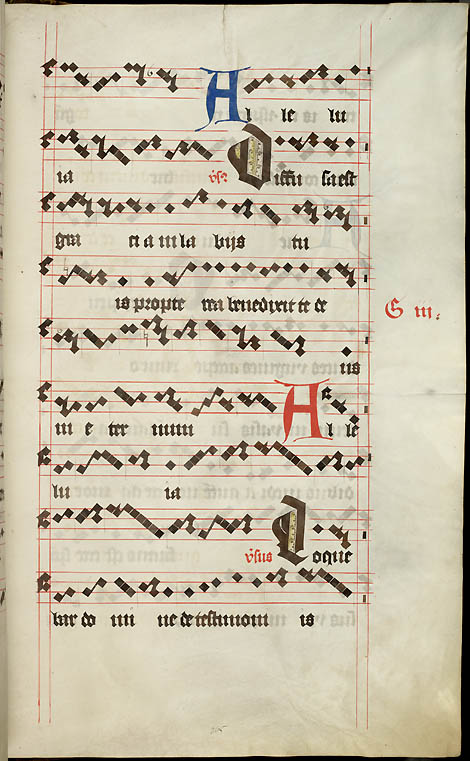 Al le lu
ia v̄sꝰ Diffu sa est
gra ci a in la bijs tu
is propte rea benedixit te de
us
in e ter num Al le
lu ia
v̄sus Loque
bar do mi ne de testimoni is